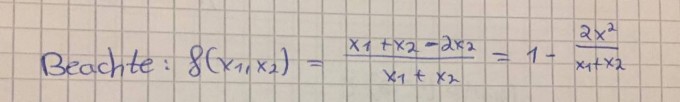 Beachte: f(x1,x2) = (x1+x2-2x2)/(x1+x2) = 1 - 2x²/(x1+x2)